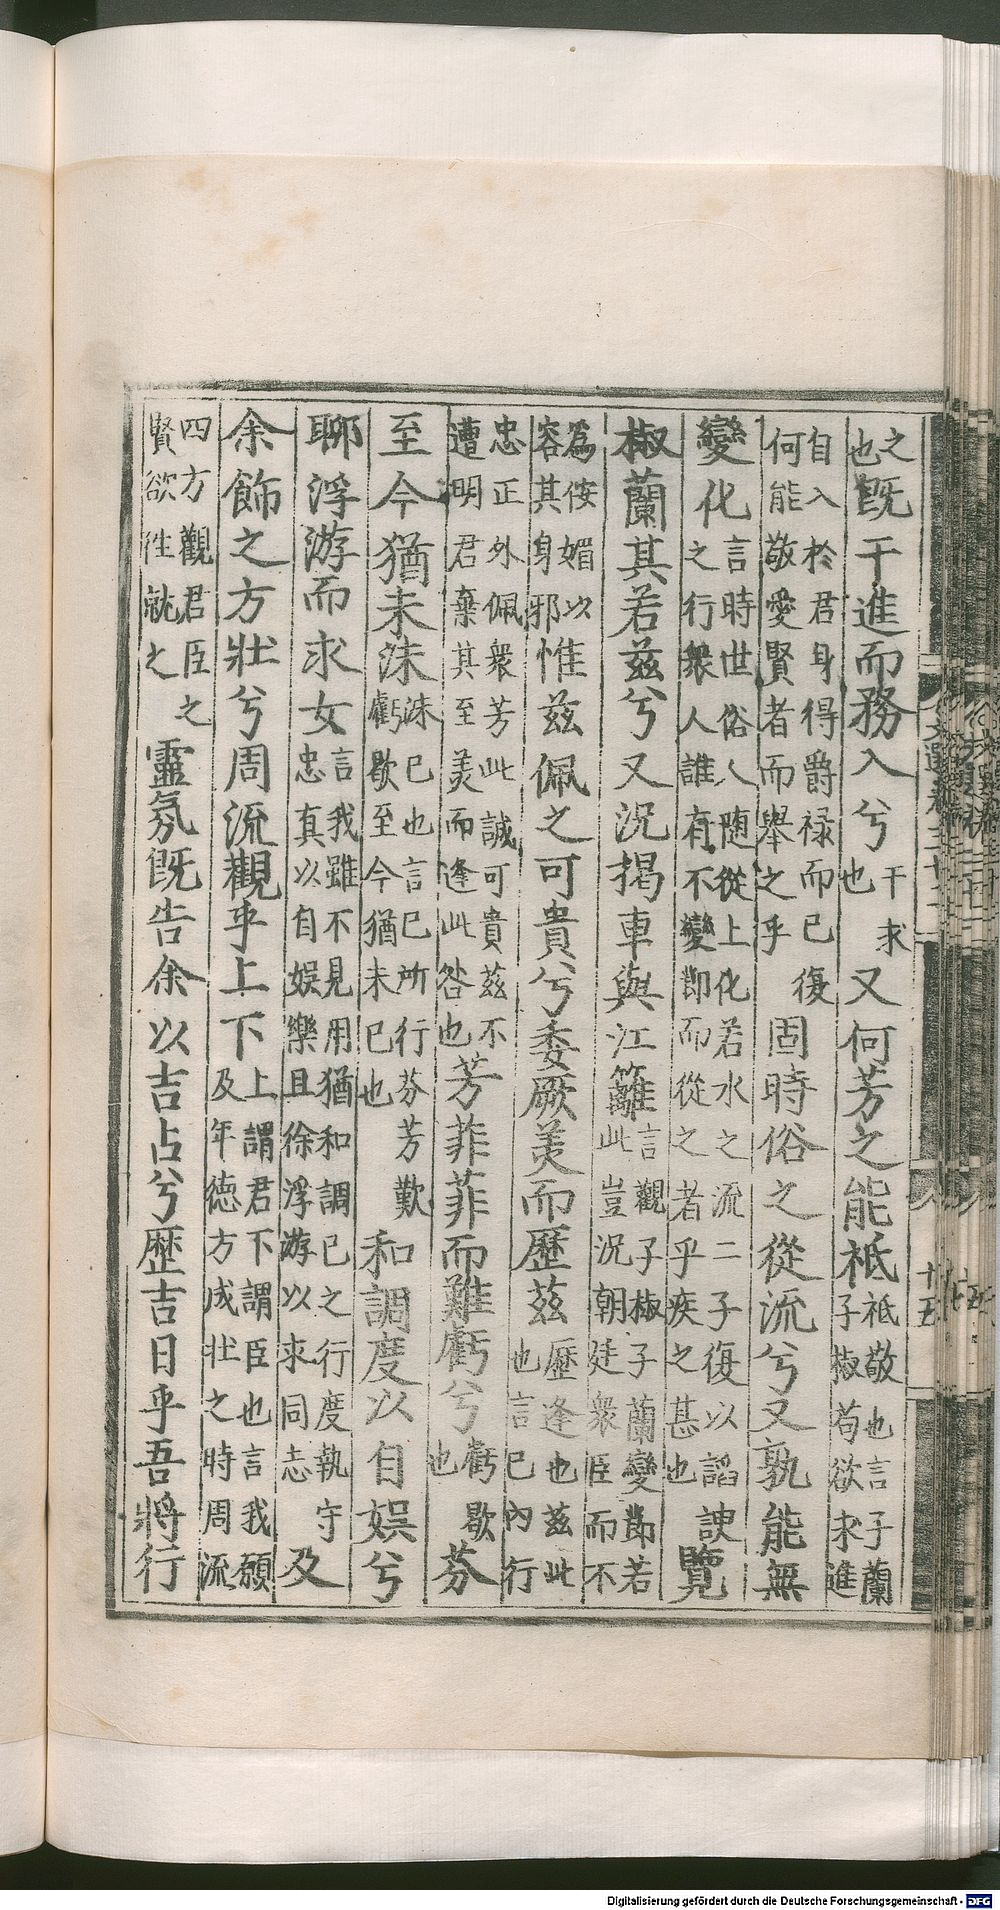 文選卷三十二 十五
之也既干進而務入兮干求也又何芳之能祗祗敬也言子蘭子椒苟欲求進
自入於君身得爵禄而已復何能敬愛賢者而舉之乎固時俗之從流兮又孰能無
變化言時世俗人随從上化若水之流二子復以諂諛之行衆人誰有不變節而從之者乎疾之甚也覽
椒蘭其若茲兮又況揭車與江蘺言觀子椒子蘭變節若此豈況朝廷衆臣而不
為侫媚以容其身邪惟茲佩之可貴兮委厥美而歷茲歷逢也茲此也言已内行
忠正外佩衆芳此誠可貴茲不遭明君棄其至美而逢此咎也芳菲菲而難虧兮虧歇也芬
至今猶未沬沬已也言已所行芬芳歎虧歇至今猶未已也和調度以自娱兮
聊浮游而求女言我雖不見用猶和調已之行度執守忠真以自娱樂且徐浮游以求同志及
余飾之方壯兮周流觀乎上下上謂君下謂臣也言我願及年德方成壯之時周流
四方觀君臣之賢欲往就之靈氛既告余以吉占兮歷吉日乎吾將行
Digitalisierung gefördert durch die Deutsche Forschungsgemeinschaft - DFG